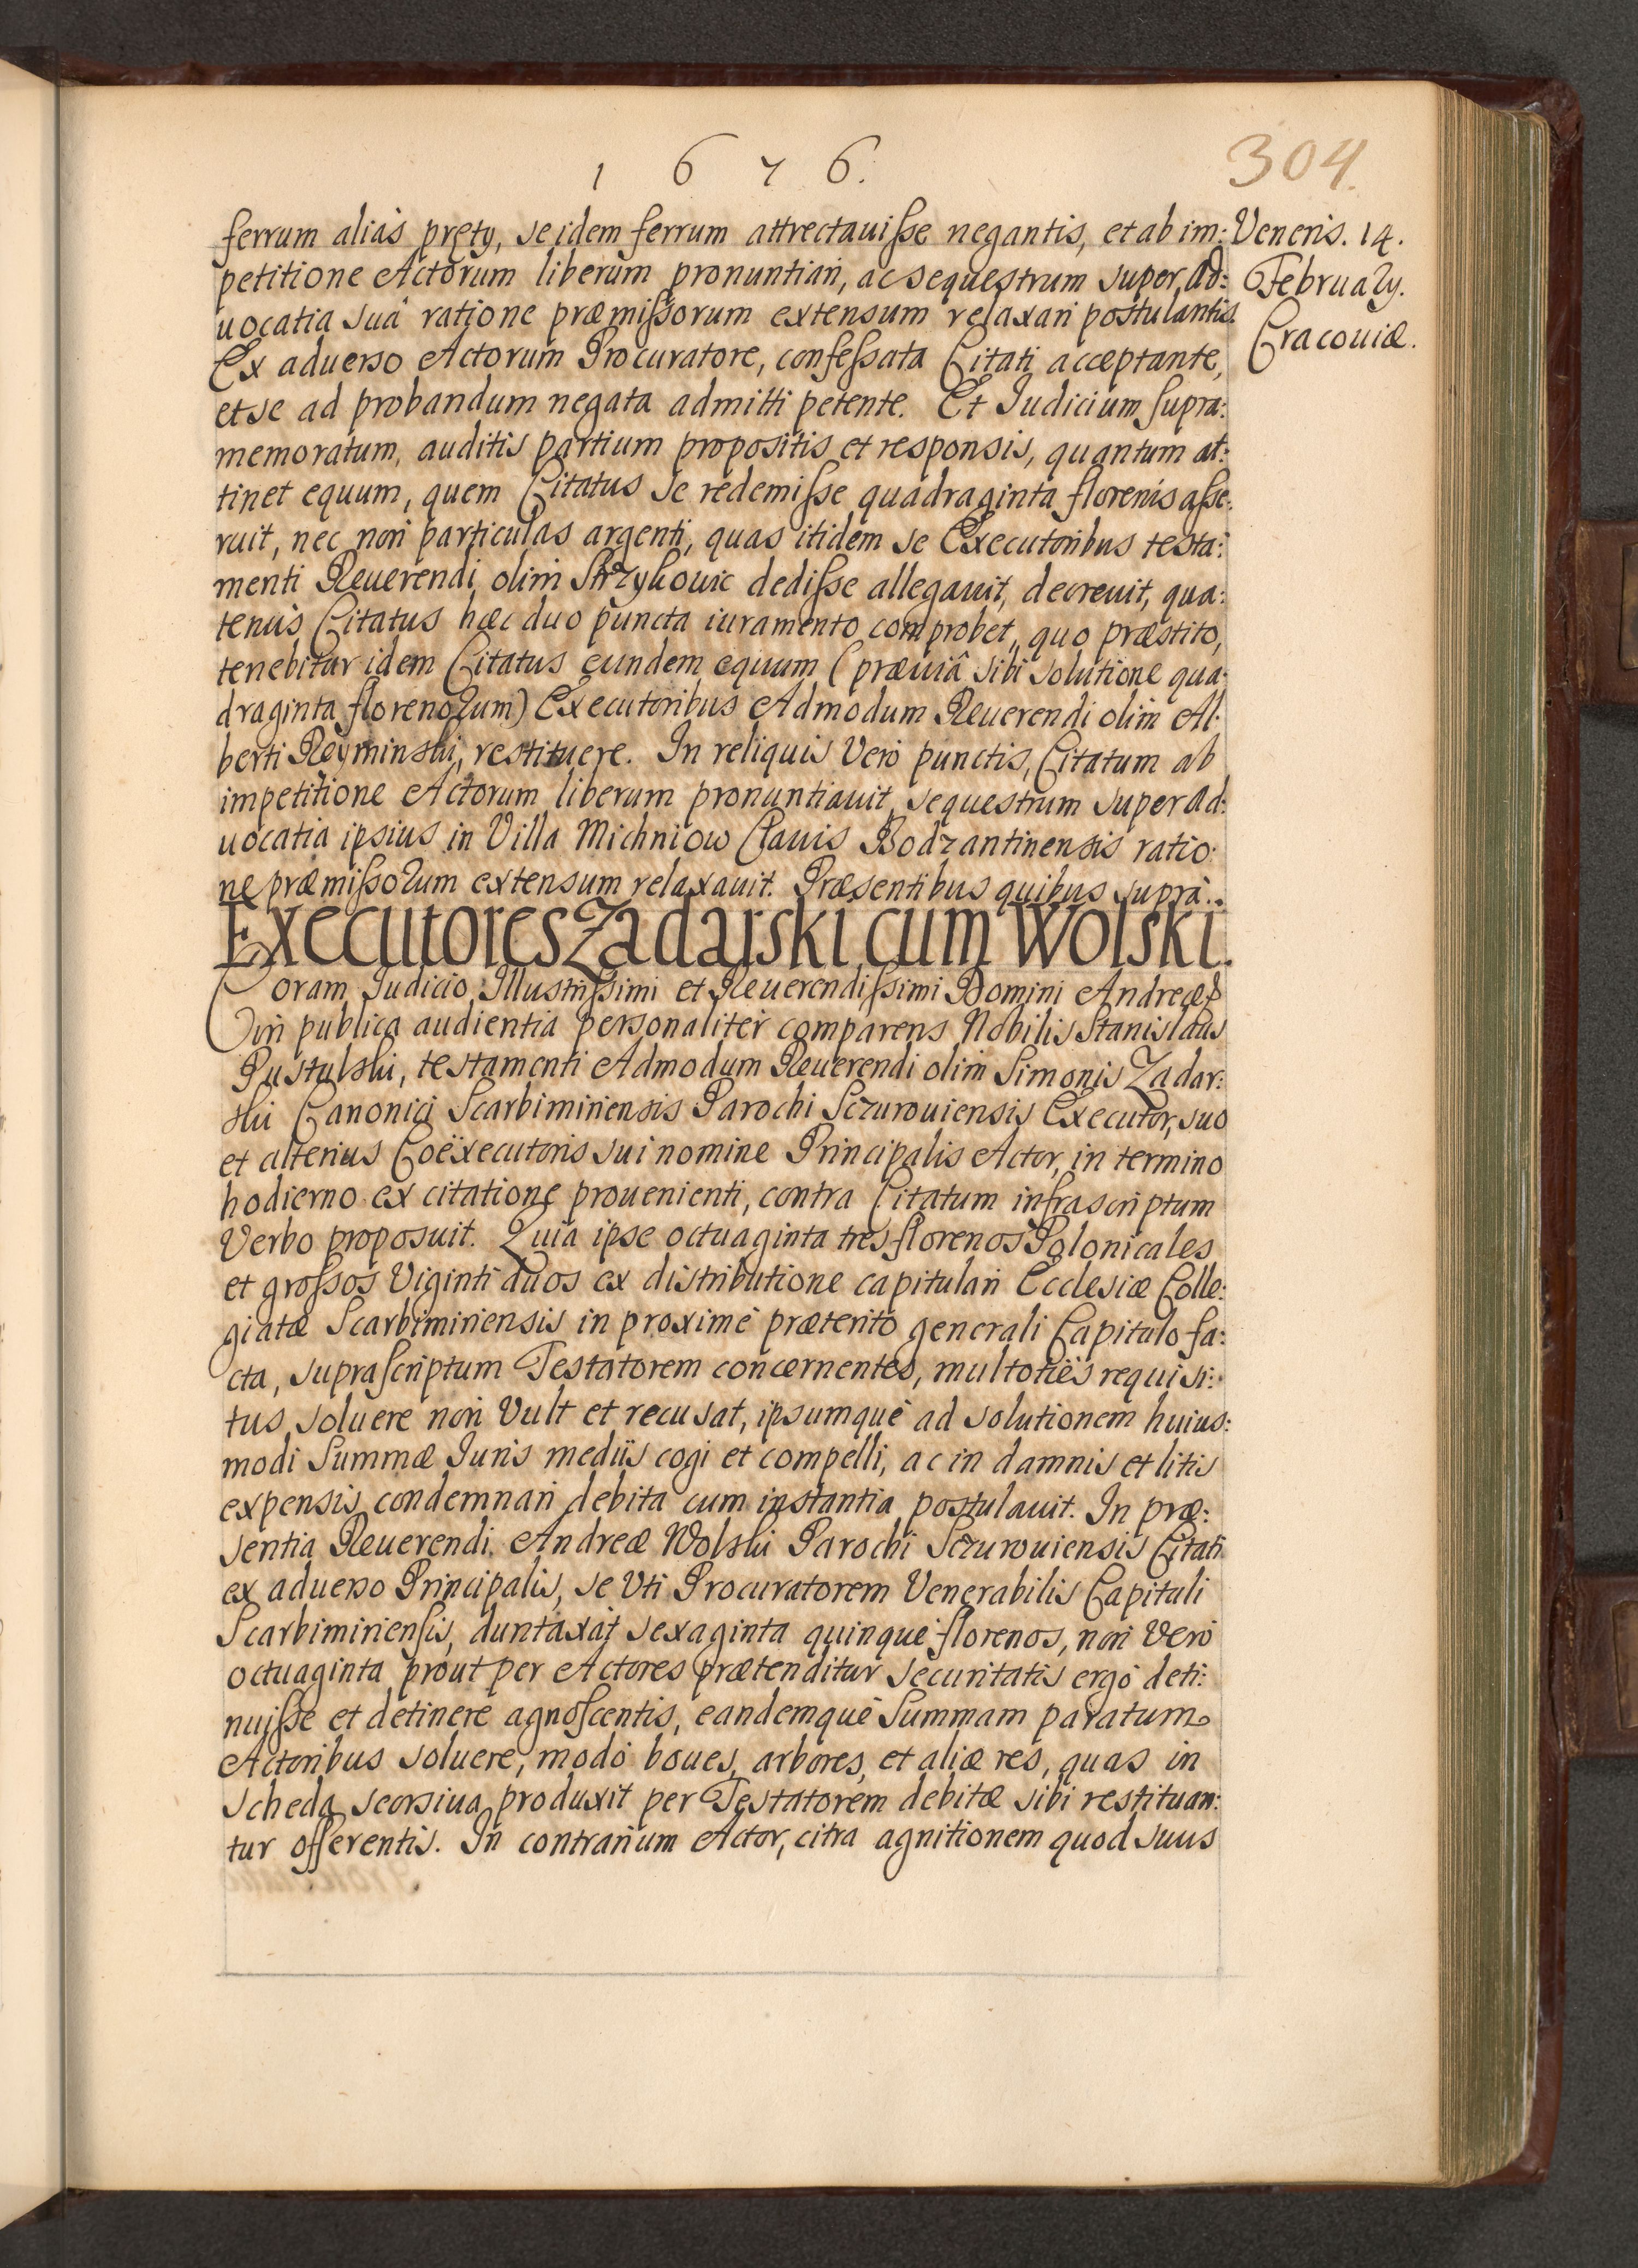 1676.
304.
Veneris. 14.
Februarÿ.
Cracouiæ.
ferrum aliàs pręty, se idem ferrum attrectauisse negantis, et ab im:
petitione Actorum liberum pronuntiari, ac sequestrum super Ad:
uocatia suâ ratione præmissorum extensum relaxari postulantis.
Ex aduerso Actorum Procuratore, confessata Citati acceptante,
et se ad probandum negata admitti petente. Et Iudicium supra:
memoratum, auditis partium propositis et responsis, quantum at:
tinet equum, quem Citatus se redemisse quadraginta florenis asse:
ruit, nec non particulas argenti, quas itidem se Executoribus testa:
menti Reuerendi olim Strzykouic dedisse allegauit, decreuit, qua:
tenus Citatus hæc duo puncta iuramento comprobet, quo præstito,
tenebitur idem Citatus eundem equum (præuiâ sibi solutione qua:
draginta florenorum) Executoribus Admodum Reuerendi olim Al:
berti Reyminski, restituere. In reliquis Verò punctis, Citatum ab
impetitione Actorum liberum pronuntiauit, sequestrum super Ad:
uocatia ipsius in Villa Michniow Clauis Bodzantinensis ratio:
ne præmissorum extensum relaxauit. Præsentibus quibus suprà.
Executores Zadarski cum Wolski.
Coram Iudicio Illustrissimi et Reuerendissimi Domini Andreæ
in publica audientia personaliter comparens Nobilis Stanislaus
Pustulski, testamenti Admodum Reuerendi olim Simonis Zadar:
ski Canonici Scarbimiriensis Parochi Sczurouiensis Executor, suo
et alterius Coëxecutoris sui nomine Principalis Actor, in termino
hodierno ex citatione prouenienti, contra Citatum infrascriptum
Verbo proposuit. Quia ipse octuaginta tres florenos Polonicales
et grossos Viginti duos ex distributione capitulari Ecclesiæ Colle:
giatæ Scarbimiriensis in proximè præterito generali Capitulo fa:
cta, suprascriptum Testatorem concernentes, multotiès requisi:
tus soluere non Vult et recusat, ipsumquè ad solutionem huius:
modi Summæ Iuris medijs cogi et compelli, ac in damnis et litis
expensis condemnari debita cum instantia postulauit. In præ:
sentia Reuerendi Andreæ Wolski Parochi Sczurouiensis Citati
ex aduerso Principalis, se Vti Procuratorem Venerabilis Capituli
Scarbimiriensis, duntaxàt sexaginta quinque florenos, non Verò
octuaginta prout per Actores prætenditur securitatis ergò deti:
nuisse et detinere agnoscentis, eandemquè Summam paratum
Actoribus soluere, modò boues, arbores, et aliæ res, quas in
scheda seorsiua produxit per Testatorem debitæ sibi restituan:
tur offerentis. In contrarium Actor, citra agnitionem quod suus